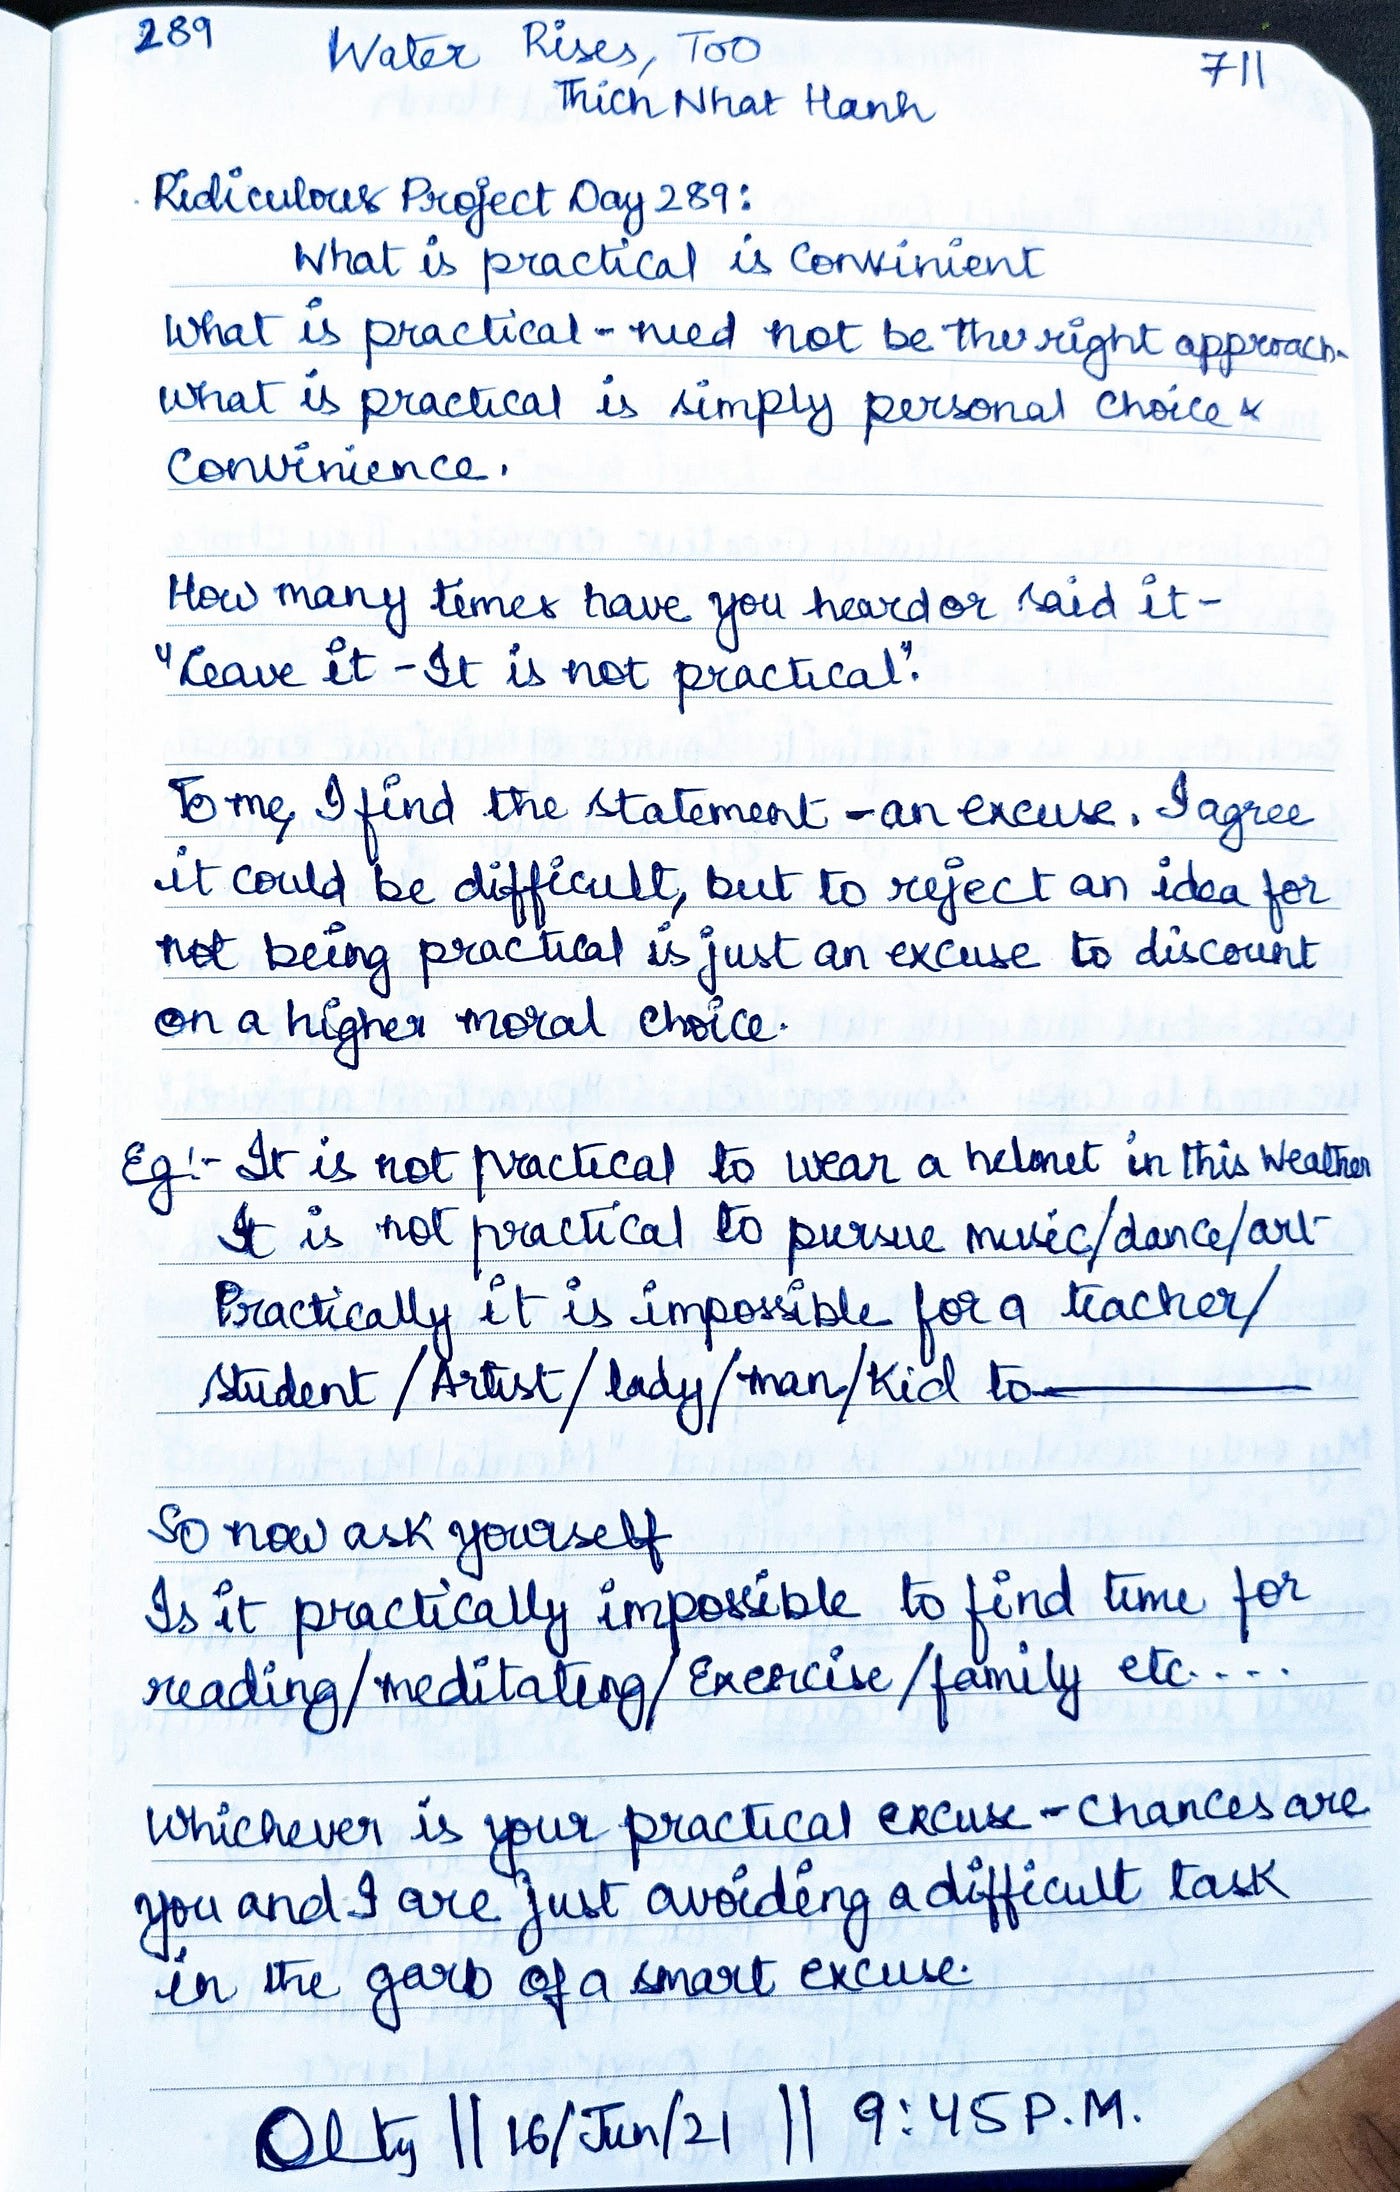 289
Water Rises, Too
711
Thich Nhat Hanh
Ridiculous Project Day 289:
What is practical is Convinient
What is practical - need not be the right approach.
What is practical is simply personal choice &
Convinience.
How many times have you heard or said it -
"Leave it - It is not practical".
To me, I find the statement - an excuse. I agree
it could be difficult, but to reject an idea for
not being practical is just an excuse to discount
on a higher moral choice.
Eg:- It is not practical to wear a helmet in this weather
It is not practical to pursue music/dance/art
Practically it is impossible for a teacher/
Student/Artist/lady/man/Kid to
So now ask yourself
Is it practically impossible to find time for
reading/meditating/Exercise/family etc....
Whichever is your practical excuse - chances are
you and I are just avoiding a difficult task
in the garb of a smart excuse.
|| 16/Jun/21 || 9:45 P.M.